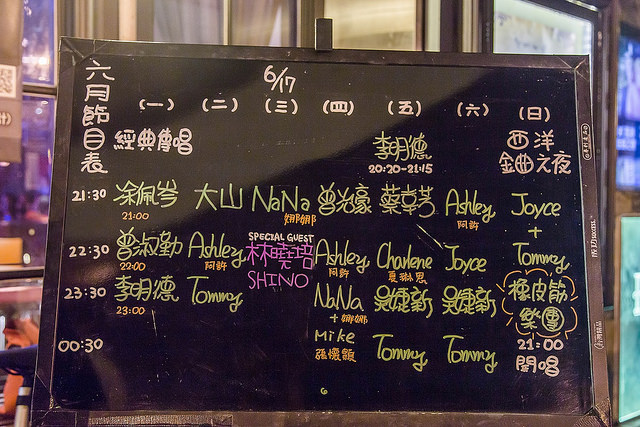 六月節目表
6/17
(一) (二) (三) (四) (五) (六) (日)
經典傳唱 李明德 西洋
20:20-21:15 金曲之夜
21:30 余佩岑 大山 NaNa 曾光豪 蔡幸芳 Ashley Joyce
21:00 娜娜 阿許 +
SPECIAL GUEST
22:30 曾淑勤 Ashley 林曉培 Ashley Charlene Joyce Tommy
22:00 阿許 SHINO 阿許 夏琳恩
23:30 李明德 Tommy NaNa 吳婕新 吳婕新 橡皮筋
23:00 + 娜娜 樂團
00:30 Mike Tommy Tommy 21:00
張懷顗 開唱